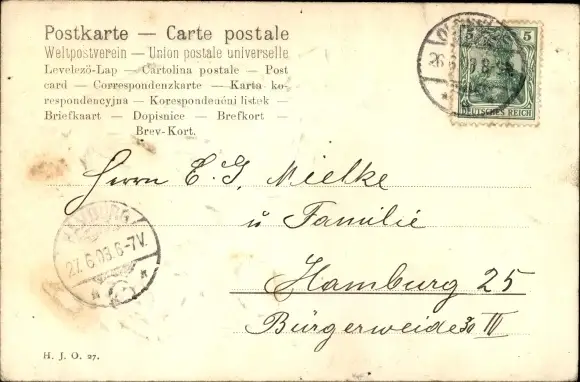 Postkarte — Carte postale
Weltpostverein — Union postale universelle
Levelező-Lap — Cartolina postale — Post
card — Correspondenzkarte — Karta ko-
respondencyjna — Korespondenční listek —
Briefkaart — Dopisnice — Brefkort —
Brev-Kort.
5
DEUTSCHES REICH
Herrn C. G. Mielke
u Familie
Hamburg 25
Bürgerweide 30 IV
HAMBURG
27.6.03.6-7V.
H. J. O. 27.